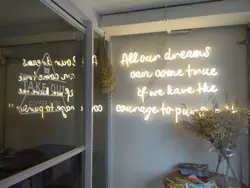 All our dreams
can come true
if we have the
courage to pursue
TAKE OUT